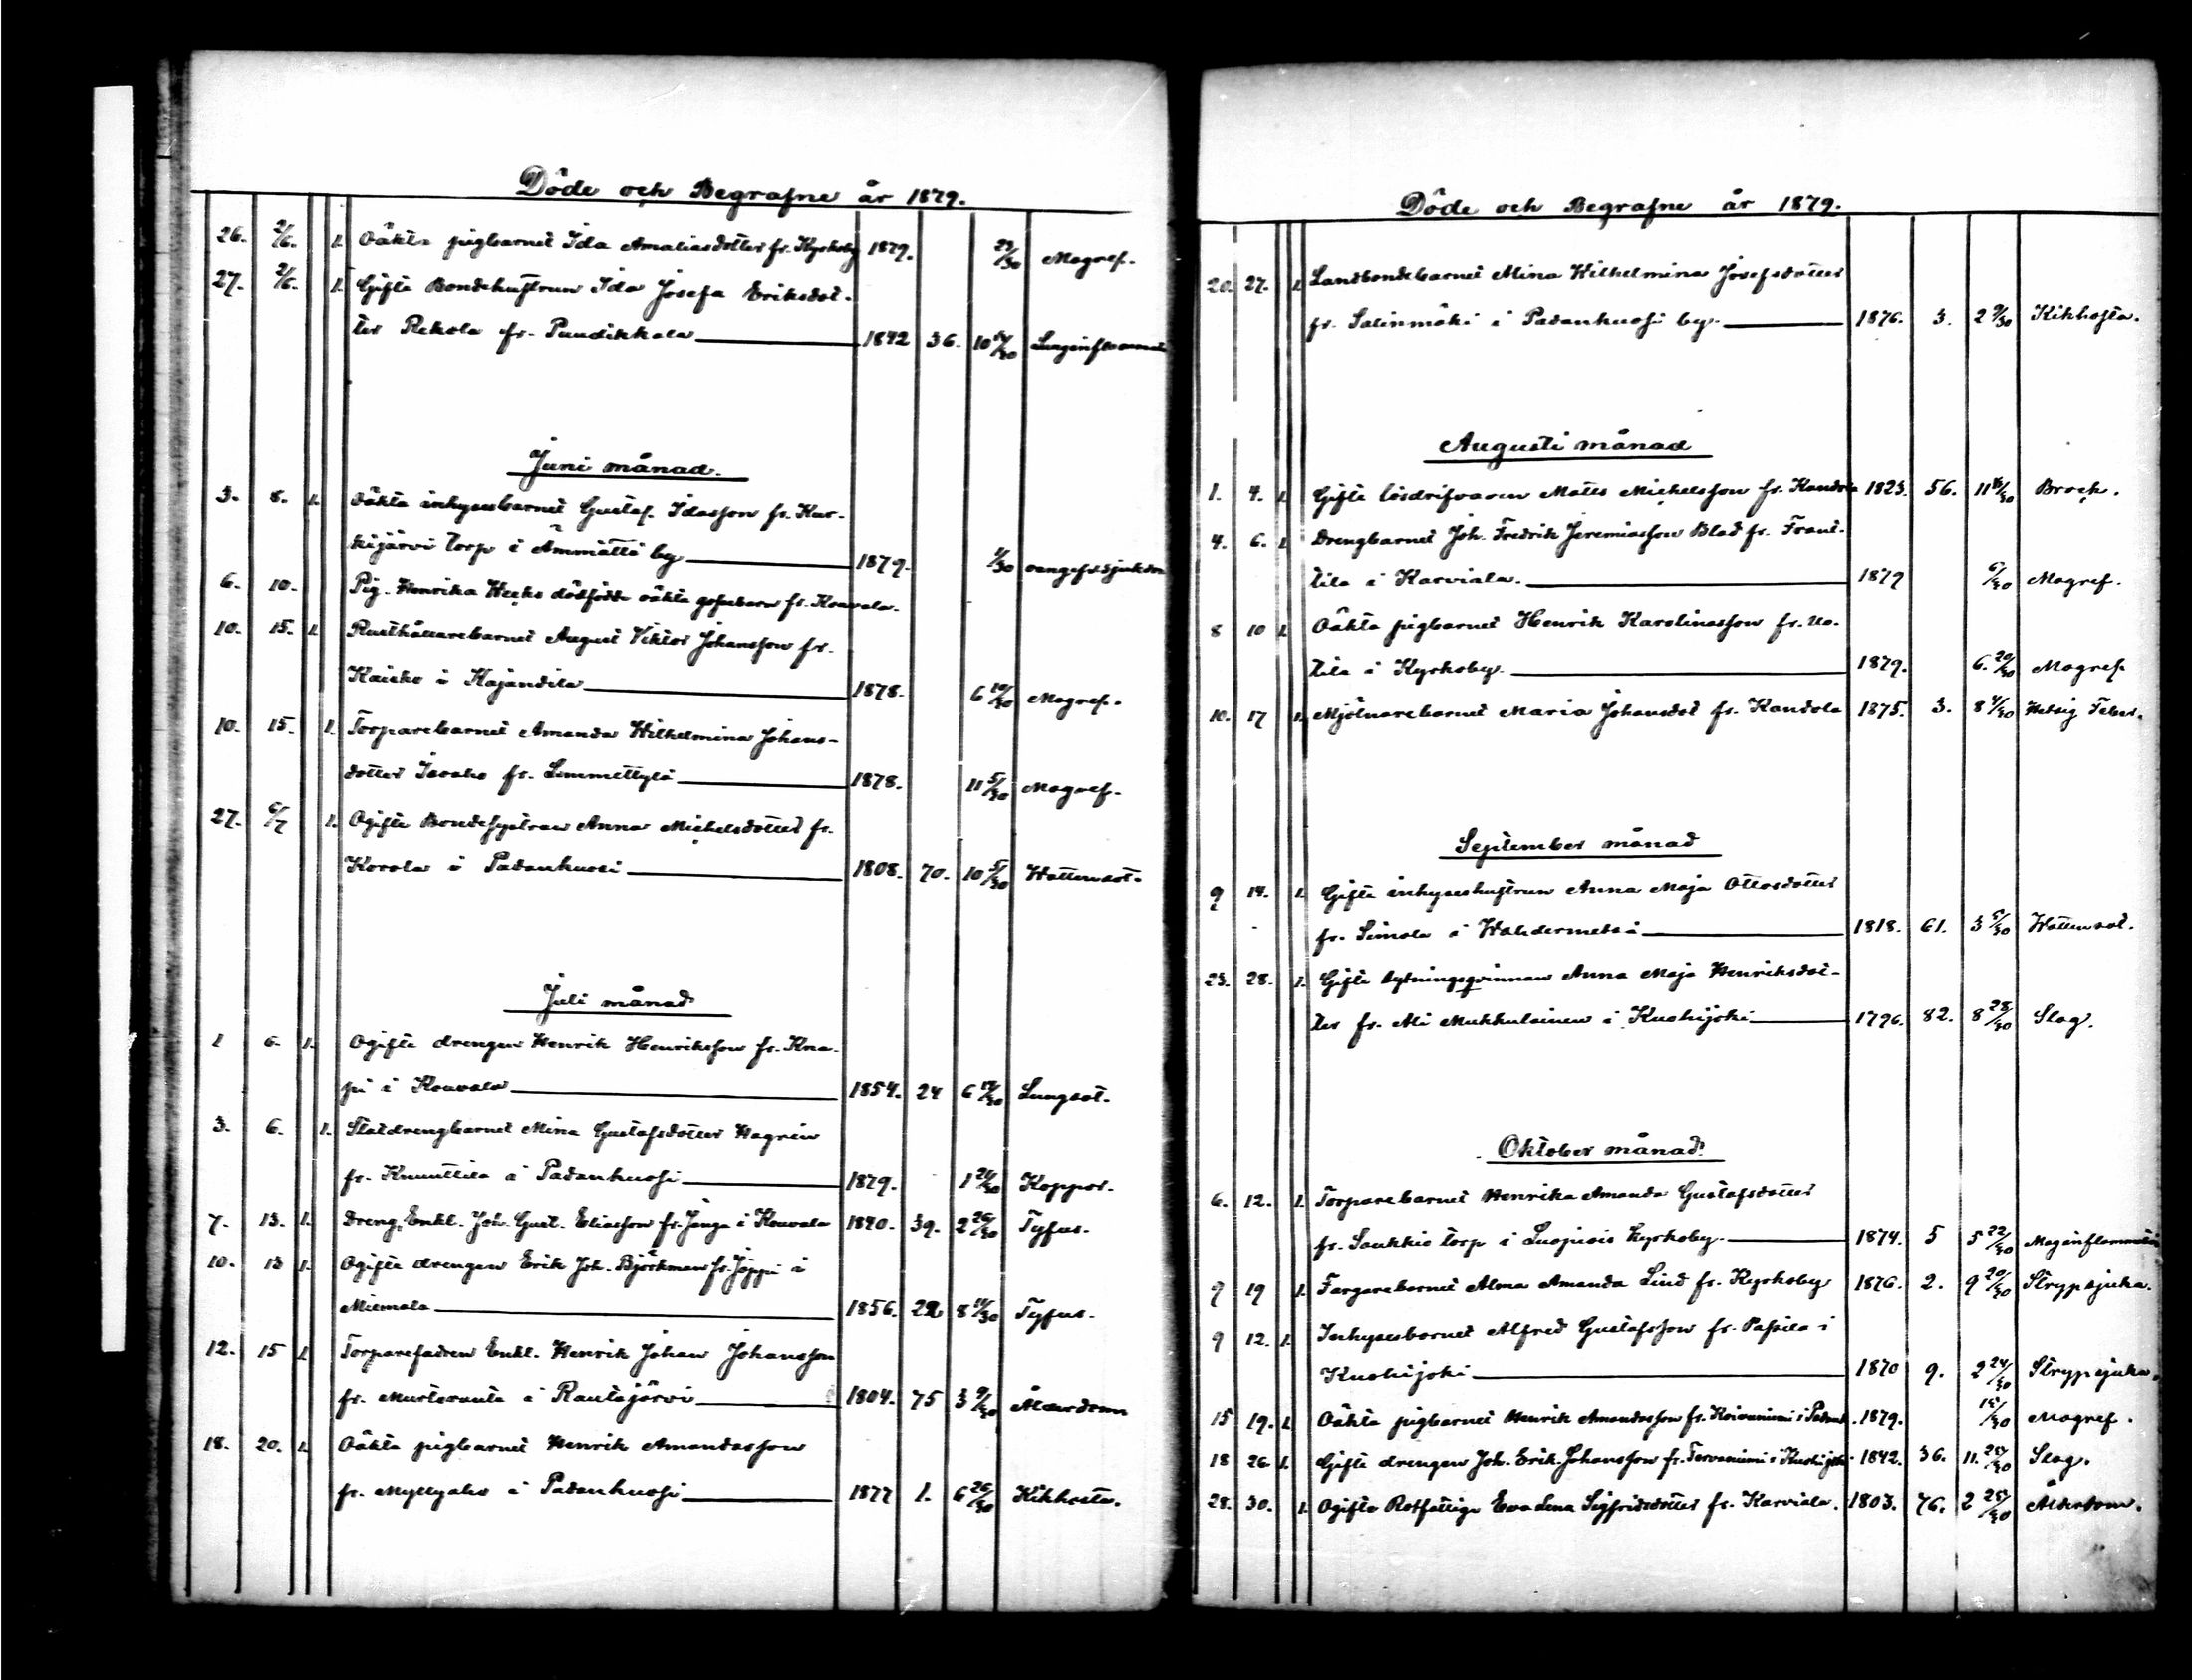 Döde och Begrafne år 1879.
26. 2/6. 1. Oäkta pigbarnet Ida Amaliasdotter fr. Kyrkoby 1879. 29/30 Magref.
27. 2/6. 1. Gifta Bondehustrun Ida Josefa Eriksdot-
ter Rekola fr. Pundikkala 1842 36. 10 Lunginflammat
Juni månad.
3. 8. 1. Oäkta inhysesbarnet Gustaf Idasson fr. Kur-
kijärvi torp i Ämmättä by 1879. 1/30 slagsjukdom
6. 10. Pig. Henrika dödfödde oäkta gossebarn fr. Kouvala.
10. 15. 1. Rusthållarebarnet August Viktor Johansson fr.
Kaisko i Kajandila 1878. 6 19/30 Magref.
10. 15. 1. Torparebarnet Amanda Wilhelmina Johans-
dotter fr. Lummettylä 1878. 11 5/30 Magref.
27. 6/7 1. Ogifta Bondesystren Anna Michelsdotter fr.
Korola i Padankuosi 1808. 70. 10 5/30 Wattensot.
Juli månad
1 6. 1. Ogifte drengen Henrik Henriksson fr. Kna-
pi i Kouvala 1854. 24 6 17/30 Lungsot.
3. 6. 1. Statdrengbarnet Mina Gustafsdotter Hagrén
fr. Knuuttila i Padankuosi 1879. 1 26/30 Koppor.
7. 13. 1. Dreng. Enkl. Joh. Gust. Eliasson fr. Janga i Kouvala 1840. 39. 2 26/30 Tyfus.
10. 13 1. Ogifte drengen Erik Joh. Björkman fr. Jöppi i
Miemala 1856. 22 8 11/30 Tyfus.
12. 15 1. Torparefadren Enkl. Henrik Johan Johansson
fr. Musteranta i Rautajärvi 1804. 75 3 9/30 Ålderdom
18. 20. 1. Oäkta pigbarnet Henrik Amandasson
fr. Myllyaho i Padankuosi 1877 1. 6 26/30 Kikhosta.
Döde och Begrafne år 1879.
20. 27. 1. Landbondebarnet Mina Wilhelmina Josefsdotter
fr. Salinmäki i Padankuosi by. 1876. 3. 2 9/30 Kikhosta.
Augusti månad
1. 4. 1. Gifte lösdrifvaren Matts Michelsson fr. Kandola 1823. 56. 11 16/30 Bråck.
4. 6. 1. Drengbarnet Joh. Fredrik Jeremiasson Blad fr. Frant-
tila i Karviala. 1879 6/30 Magref.
8 10 1. Oäkta pigbarnet Henrik Karolinasson fr. Uo-
tila i Kyrkoby. 1879. 6. 20/30 Magref
10. 17 1. Mjölnarebarnet Maria Johansdot fr. Kandola 1875. 3. 8 4/30 Hetsig Feber.
September månad
9 14. 1. Gifta inhyseshustrun Anna Maja Ottosdotter
fr. Simola i Wahdermetsä 1818. 61. 3 5/30 Wattensot.
23. 28. 1. Gifta sytningsqvinnan Anna Maja Henriksdot-
ter fr. Ali Mukkulainen i Kuohijoki 1796. 82. 8 28/30 Slag.
Oktober månad.
6. 12. 1. Torparebarnet Henrika Amanda Gustafsdotter
fr. Saukkio torp i Luopiois Kyrkoby. 1874. 5 5 22/30 Maginflammation
9 19 1. Färgarebarnet Alma Amanda Lind fr. Kyrkoby 1876. 2. 9 20/30 Strypsjuka.
9 12. 1. Inhysesbarnet Alfred Gustafsson fr. Passila i
Kuohijoki 1870 9. 2 24/30 Strypsjuka.
15 19. 1. Oäkta pigbarnet Henrik Amandasson fr. Koivuniemi i Padank. 1879. 15/30 Magref.
18 26. 1. Gifte drengen Joh. Erik Johansson fr. Tervaniemi i Kuohijoki 1842. 36. 11. 25/30 Slag.
28. 30. 1. Ogifta Rotfattige Eva Lena Sigfridsdotter fr. Karviala. 1803. 76. 2 25/30 Ålderdom.